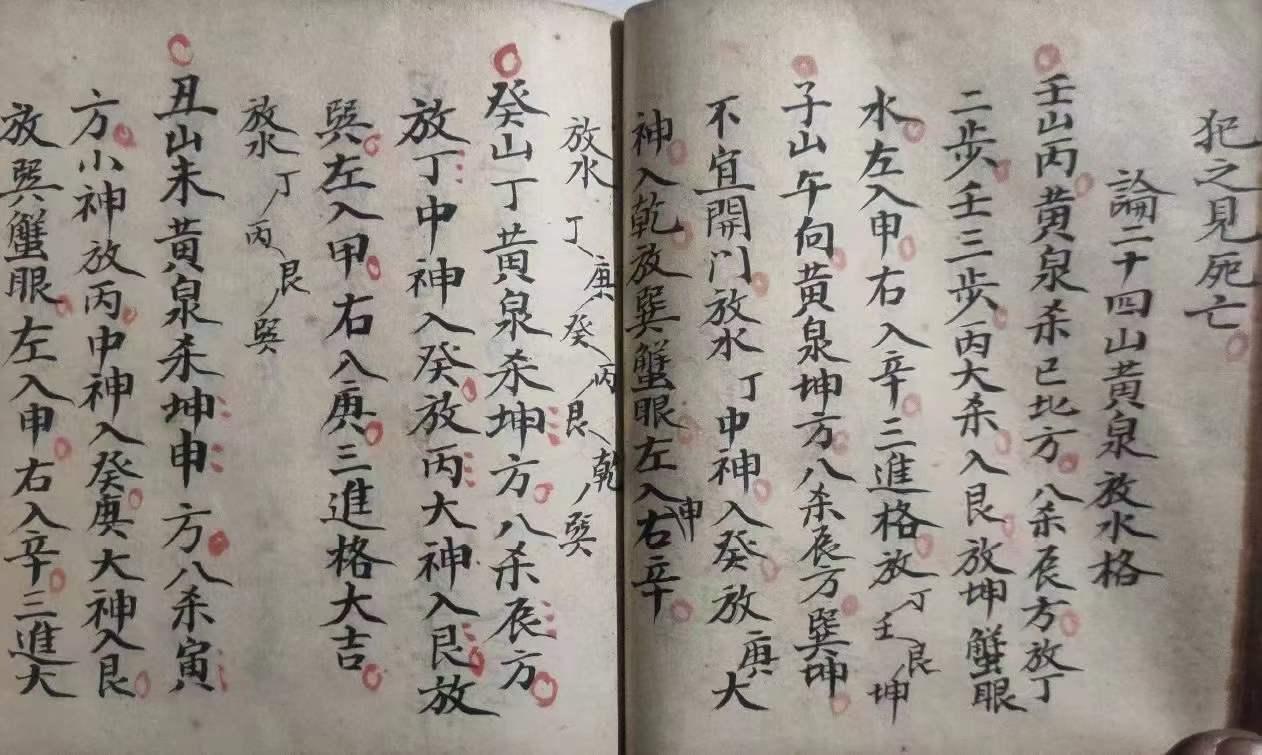 犯之見死亡
論二十四山黃泉放水格
壬山丙黃泉杀巳地方八杀辰方放丁
二步壬三步丙大杀入艮放坤蟹眼
水左入甲右入辛三進格放丁艮壬坤
子山午向黃泉坤方八杀辰方巽坤
不宜開门放水丁中神入癸放庚大
神入乾放巽蟹眼左入申右辛
放水丁庚癸丙艮乾巽
癸山丁黃泉杀坤方八杀辰方
放丁中神入癸放丙大神入艮放
巽左入甲右入庚三進格大吉
放水丁丙艮巽
丑山未黃泉杀坤申方八杀寅
方小神放丙中神入癸庚大神入艮
放巽蟹眼左入申右入辛三進大